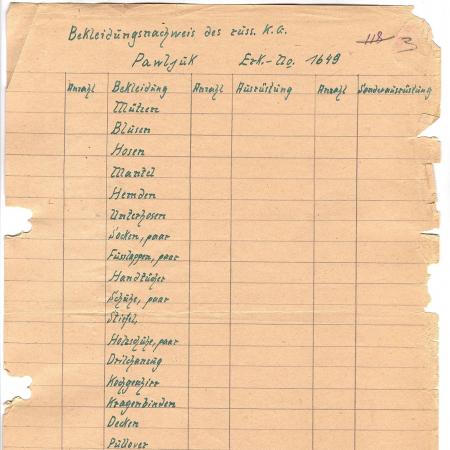 Bekleidungsnachweis des russ. K.G.
118 3
Pawljuk Erk.-No. 1649
Anzahl Bekleidung Anzahl Ausrüstung Anzahl Sonderausrüstung
Mützen
Blusen
Hosen
Mantel
Hemden
Unterhosen
Socken, paar
Fusslappen, paar
Handtücher
Schuhe, paar
Stiefel,
Holzschuhe, paar
Drillichanzug
Kochgeschirr
Kragenbinden
Decken
Pullover